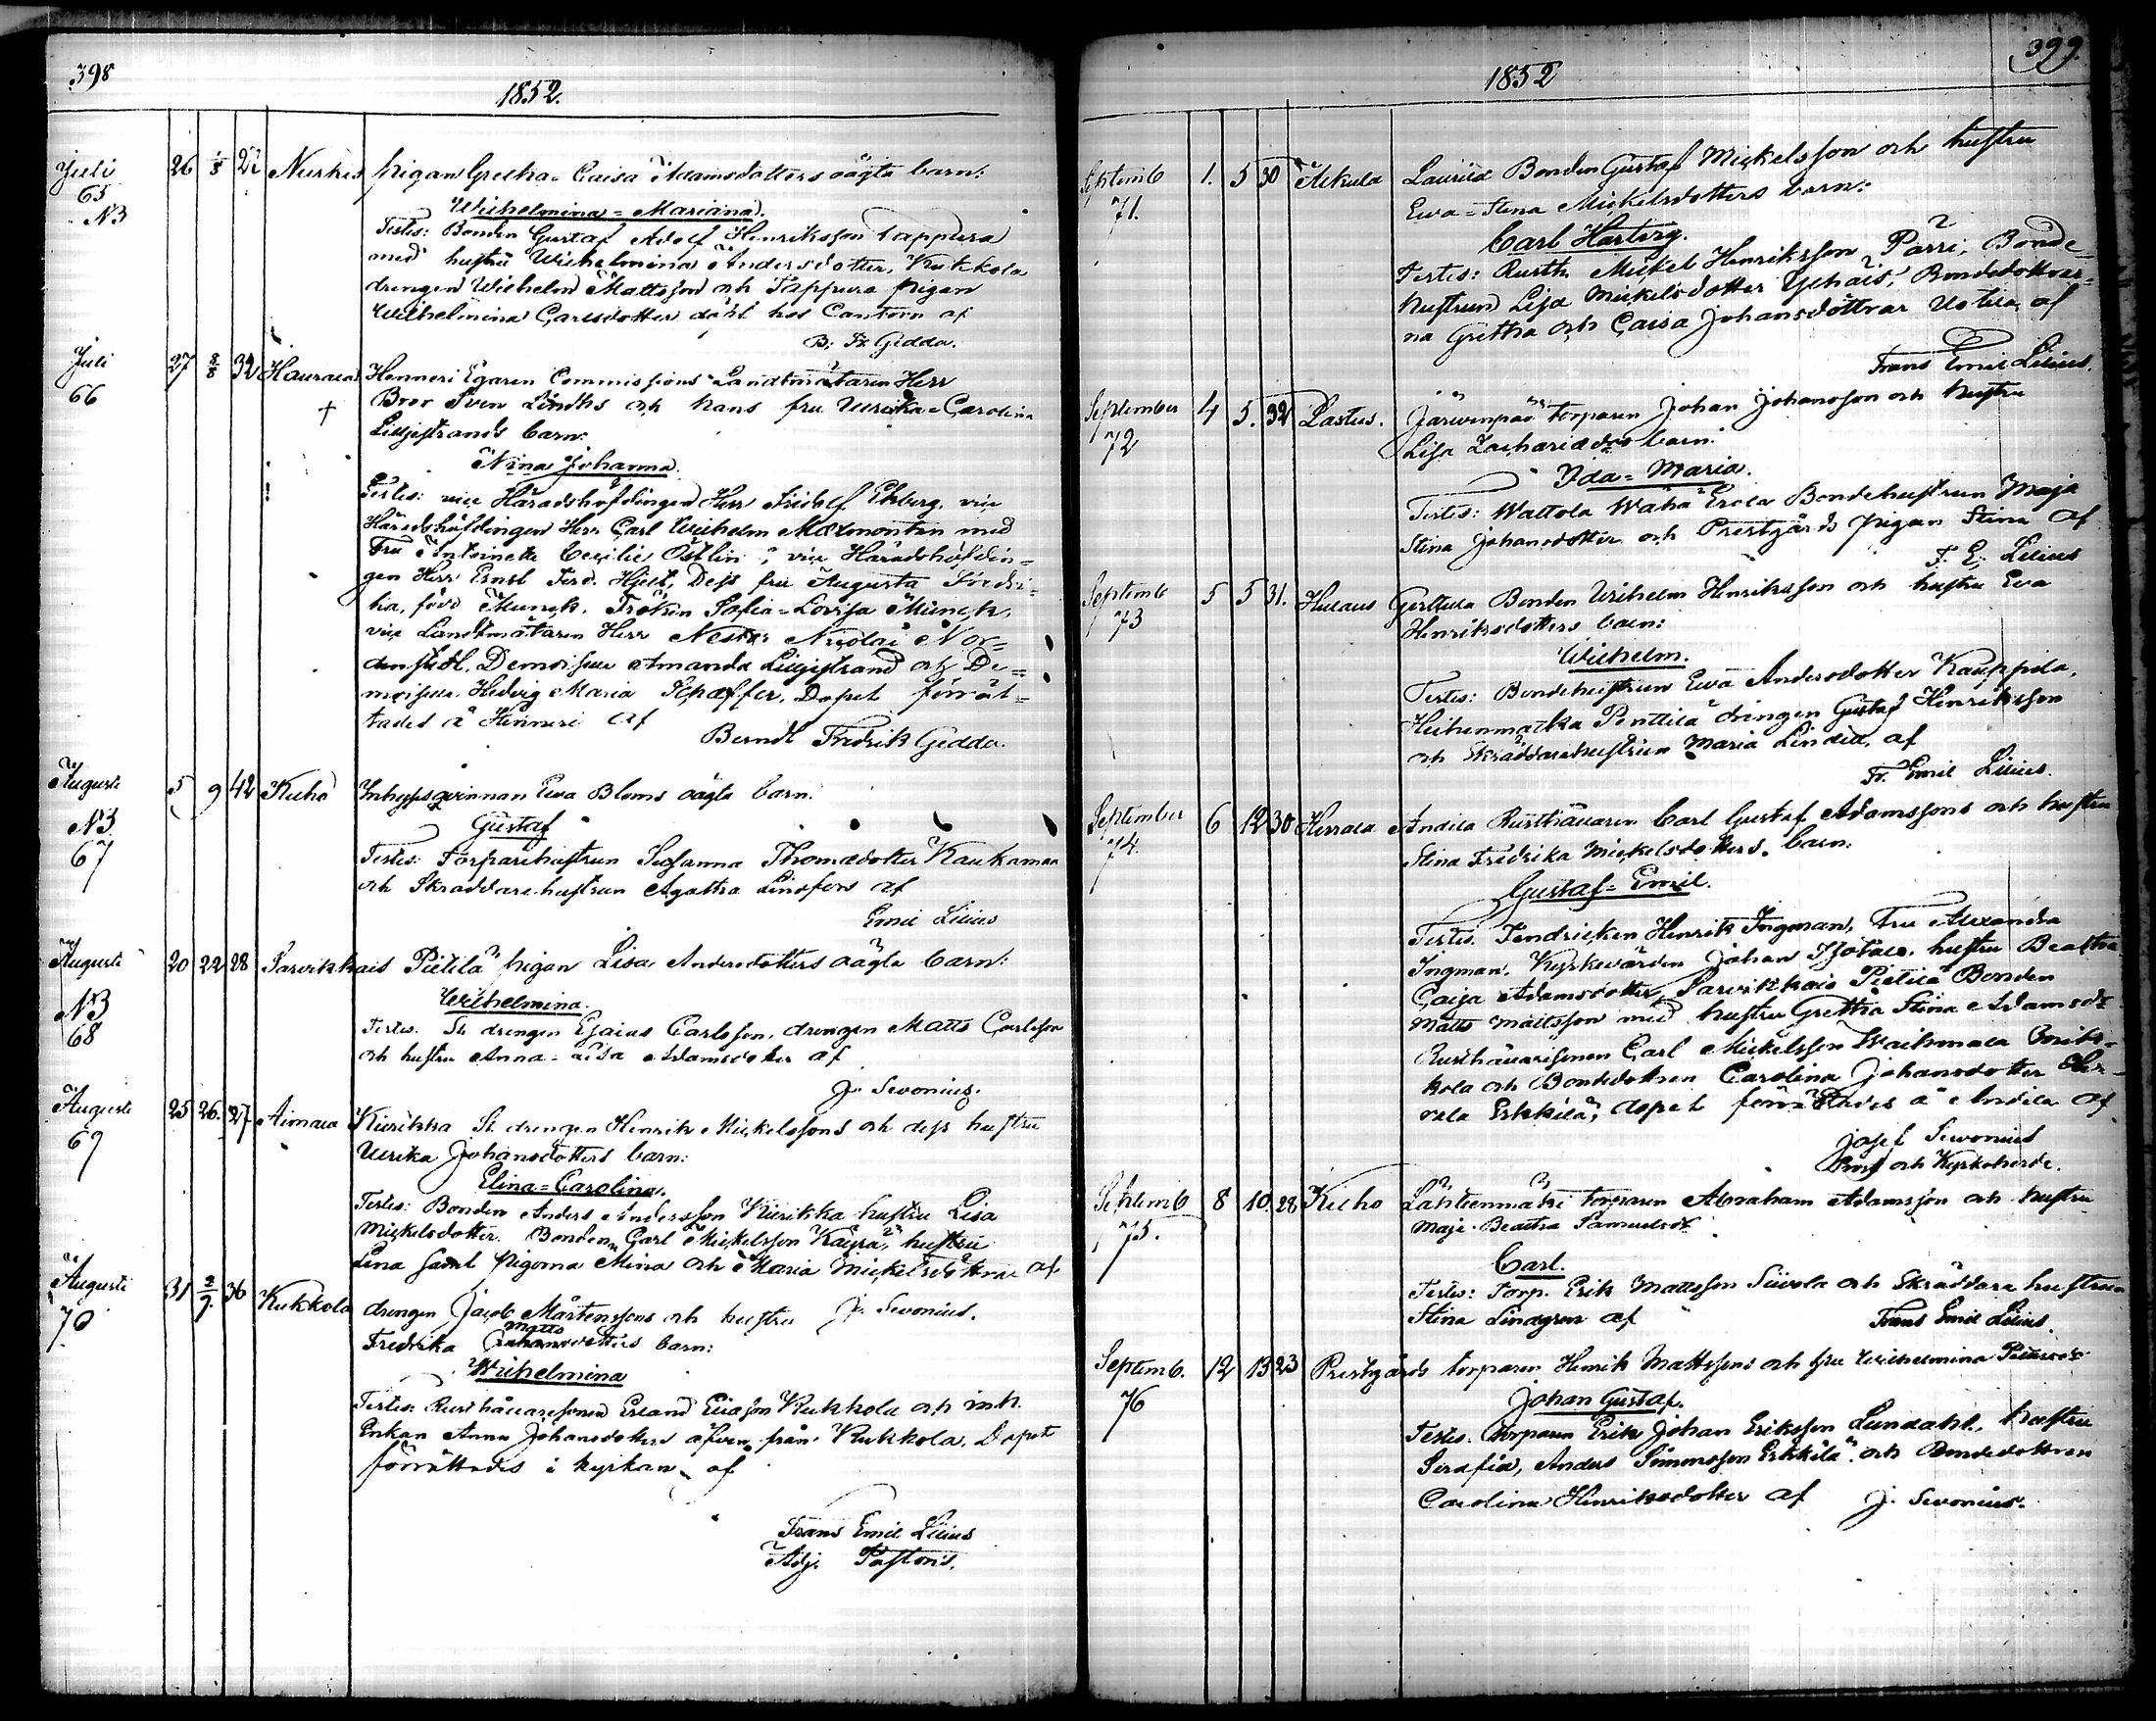 398
1852.
Juli 65 N3 26 1/8 22 Nurkis pigan Gretha-Caisa Adamsdotters oägta barn:
Wilhelmina=Mariana.
Testes: Bonden Gustaf Adolf Henriksson Tappura
med hustru Wilhelmina Andersdotter, Kukkola
drengen Wilhelm Mattsson och Tappura pigan
Wilhelmina Carlsdotter döpt hos Cantorn af
B. Fr. Gedda.
Juli 66 27 8/8 32 Henneri Egaren Commissions Landtmätaren Herr
† Bror Sven Lindhs och hans fru Ulrika=Carolina
Liljestrands barn:
Nina Johanna.
Testes: vice Häradshöfdingen Herr Fridolf Ekberg, vice
Häradshöfdingen Herr Carl Wilhelm Malmontan med
Fru Antoinette Cecilie Östlin, vice Häradshöfdin=
gen Herr Ernst Ferd. Hjelt, Dess fru Augusta Fredri=
ka, född Munck. Fröken Sofia=Lovisa Munck,
vice Landtmätaren Herr Nestor Nicolai Nor=
denstedt. Demoiselle Amanda Liljestrand och De=
moiselle Hedvig Maria Schæffer. Dopet förrät=
tades å Henneri af
Berndt Fredrik Gedda.
Augusti N3 67 5 9 42 Kuho Inhysqvinnan Eva Bloms oägta barn.
Gustaf
Testes: Torparehustrun Susanna Thomædotter Kaukamaa
och Skräddarehustrun Agatha Lindfors af
Emil Lilius
Augusti N3 68 20 22 28 Sarvikkais Pietilä pigan Lisa Andersdotters oägta barn:
Wilhelmina.
Testes. St drengen Esaias Carlsson, drengen Matts Carlsson
och hustru Anna=Lisa Adamsdotter af
J. Sevonius.
Augusti 69 25 26. 27 Aimala Kiirikka St drengen Henrik Mickelssons och dess hustru
Ulrika Johansdotters barn:
Elina=Carolina.
Testes: Bonden Anders Andersson Kiirikka hustru Lisa
Mickelsdotter. Bonden Carl Mickelsson Kayrä, hustru
Lina samt pigorna Mina och Maria Mickelsdöttrar af
J. Sevonius.
Augusti 70 31 2/9. 36 Kukkola drengen Jacob Mårtenssons och hustru
Fredrika Matts dotters barn:
Wilhelmina
Testes: Rusthållaresonen Erland Eliasson Kukkola och inh.
Enkan Anna Johansdotter äfven från Kukkola. Dopet
förrättades i kyrkan af
Frans Emil Lilius
Adj. Pastoris.
399.
1852
Septemb 71. 1. 5 30 Äikala Laurila Bonden Gustaf Mickelsson och hustru
Ewa=Stina Mickelsdotters barn:
Carl Hartvig.
Testes: Rusth. Mickel Henriksson Parri, Bonde=
hustrun Lisa Mickelsdotter Yphäis, Bondedöttrar=
na Gretha och Caisa Johansdöttrar Uotila, af
Frans Emil Lilius.
September 72 4 5. 32 Lastus. Järvenpää torparen Johan Johansson och hustru
Lisa Zachariædrs barn:
Ida=Maria.
Testes: Wattola Wähä Erola Bondehustrun Maja
Stina Johansdotter och Prestgårds pigan Stina af
F. E. Lilius
Septemb 73 5 5 31. Hulaus Gerttula Bonden Wilhelm Henriksson och hustru Eva
Henriksdotters barn:
Wilhelm.
Testes: Bondehustrun Eva Andersdotter Kauppila,
Heihenmaeka Penttilä drengen Gustaf Henriksson
och Skräddarehustrun Maria Lindell, af
Fr. Emil Lilius.
September 74. 6 12 30 Herrala Andila Rusthållaren Carl Gustaf Adamssons och hustru
Stina Fredrika Mickelsdotters barn:
Gustaf=Emil.
Testes. Fendricken Henrik Ingman, Fru Alexandra
Ingman. Kyrkovärden Johan Isotalo, hustru Beatha
Caisa Adamsdotter, Sarvikkais Pietilä Bonden
Matts Mattsson med hustru Gretha Stina Adamsdr
Rusthållaresonen Carl Mickelsson Waihmala
kola och Bondedottren Carolina Johansdotter Her=
rala Erkkilä, dopet förrättades å Andila af
Josef Sevonius
Prost och Kyrkoherde.
Septemb 75. 8 10. 28 Kulho Lähteenmäki torparen Abraham Adamsson och hustru
Maja Beatha Samuelsdr
Carl.
Testes: Torp. Erik Mattsson Siivola och Skräddare hustrun
Stina Lindgren af
Frans Emil Lilius.
Septemb. 76 12 13 23 Prestgårds torparen Henrik Mattssons och hu Wilhelmina Petersdr
Johan Gustaf.
Testes. torparen Erik Johan Eriksson Lundahl, hustru
Serafia, Anders Simonsson Erkkilä och Bondedottren
Carolina Henriksdotter af J. Sevonius.